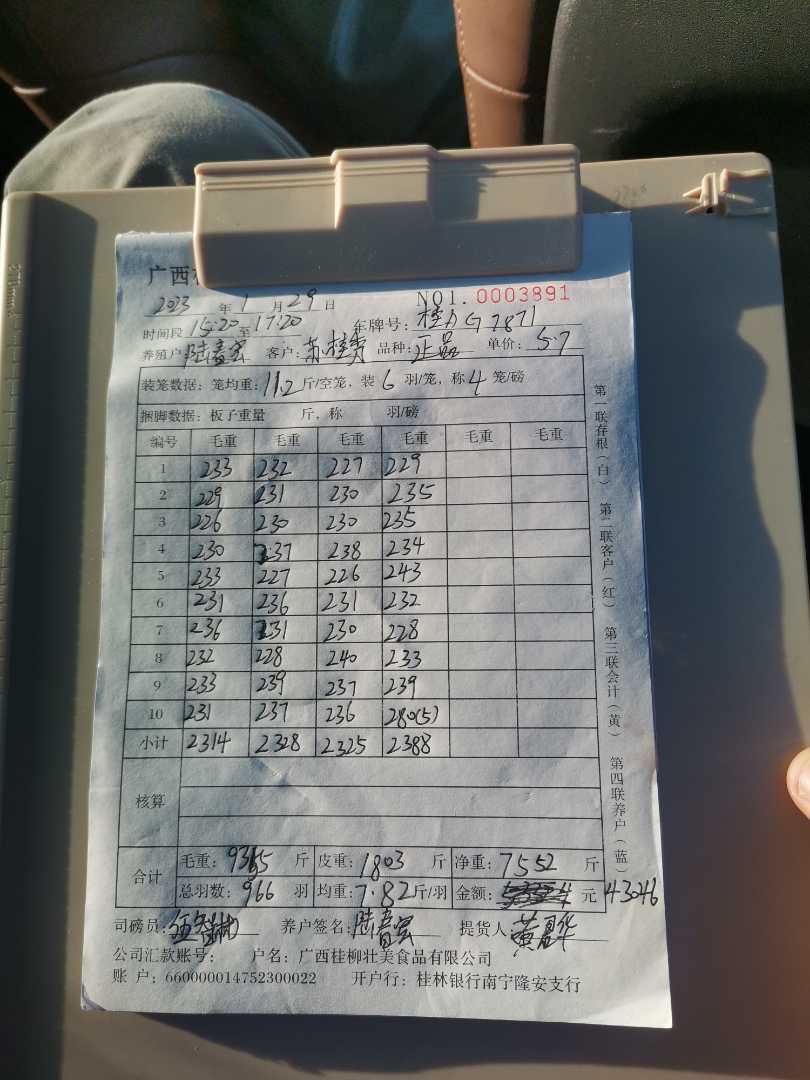 广西
2023 年 1 月 29 日 NO1. 0003891
时间段 15:20 至 17:20 车牌号: 桂AG7871
养殖户 陆春宏 客户: 苏桂秀 品种: 正品 单价: 5.7
装笼数据: 笼均重: 11.2 斤/空笼, 装 6 羽/笼, 称 4 笼/磅
捆脚数据: 板子重量 斤, 称 羽/磅
编号 毛重 毛重 毛重 毛重 毛重 毛重
1 233 232 227 229
2 229 231 230 235
3 226 230 230 235
4 230 237 238 234
5 233 227 226 243
6 231 236 231 232
7 236 231 230 228
8 232 228 240 233
9 233 239 237 239
10 231 237 236 280(5)
小计 2314 2328 2325 2388
核算
合计 毛重: 9355 斤 皮重: 1803 斤 净重: 7552 斤
总羽数: 966 羽 均重: 7.82 斤/羽 金额: 元 43046
司磅员: 养户签名: 陆春宏 提货人:
公司汇款账号: 户名: 广西桂柳壮美食品有限公司
账 户: 660000014752300022 开户行: 桂林银行南宁隆安支行
第一联存根(白) 第二联客户(红) 第三联会计(黄) 第四联养户(蓝)